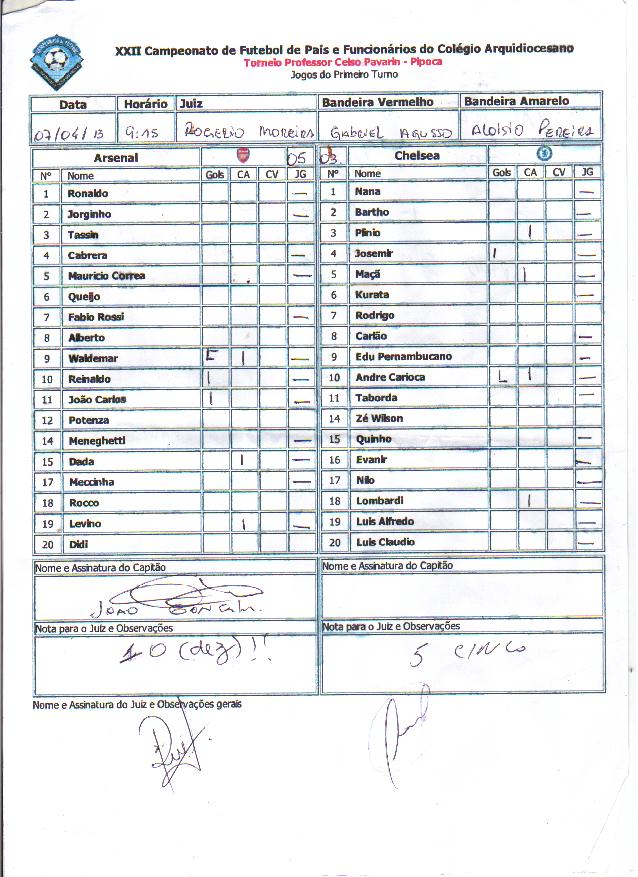 XXII Campeonato de Futebol de País e Funcionários do Colégio Arquidiocesano
Torneio Professor Celso Pavarin - Pipoca
Jogos do Primeiro Turno
Data Horário Juiz Bandeira Vermelho Bandeira Amarelo
07/04/13 9:15 ROGERIO MOREIRA GABRIEL AGUSSO ALOISIO PEREIRA
Arsenal 05 03 Chelsea
Nº Nome Gols CA CV JG Nº Nome Gols CA CV JG
1 Ronaldo — 1 Nana —
2 Jorginho — 2 Bartho —
3 Tassin 3 Plinio | —
4 Cabrera — 4 Josemir | —
5 Mauricio Correa — 5 Maçã | —
6 Queijo 6 Kurata —
7 Fabio Rossi — 7 Rodrigo
8 Alberto 8 Carlão —
9 Waldemar E | — 9 Edu Pernambucano —
10 Reinaldo | — 10 Andre Carioca L | —
11 João Carlos | — 11 Taborda —
12 Potenza 14 Zé Wilson
14 Meneghetti — 15 Quinho —
15 Dada | — 16 Evanir —
17 Meccinha — 17 Nilo —
18 Rocco 18 Lombardi | —
19 Levino | — 19 Luis Alfredo —
20 Didi 20 Luis Claudio —
Nome e Assinatura do Capitão Nome e Assinatura do Capitão
JOAO
Nota para o Juiz e Observações Nota para o Juiz e Observações
10 (dez)!! 5 CINCO
Nome e Assinatura do Juiz e Observações gerais